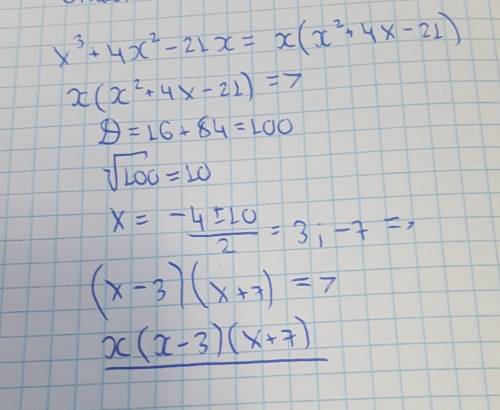 x³+4x²-21x= x(x²+4x-21)
x(x²+4x-21) =>
D=16+84=100
√100=10
x= (-4±10)/2 = 3; -7 =>
(x-3)(x+7) =>
x(x-3)(x+7)